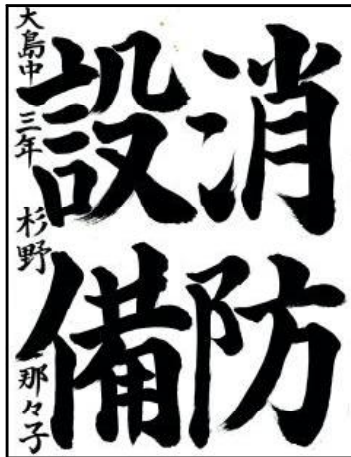 消防
設備
大島中 三年 杉野 那々子